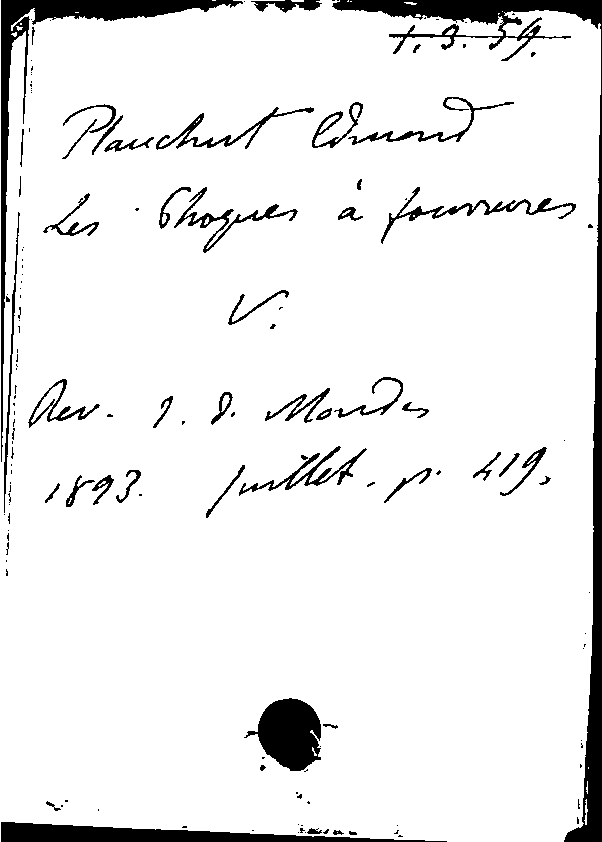 1. 3. 59.
Plauchut Edmond
Les Phoques à fourrures.
V.
Rev. d. d. Mondes
1893. Juillet. p. 419.